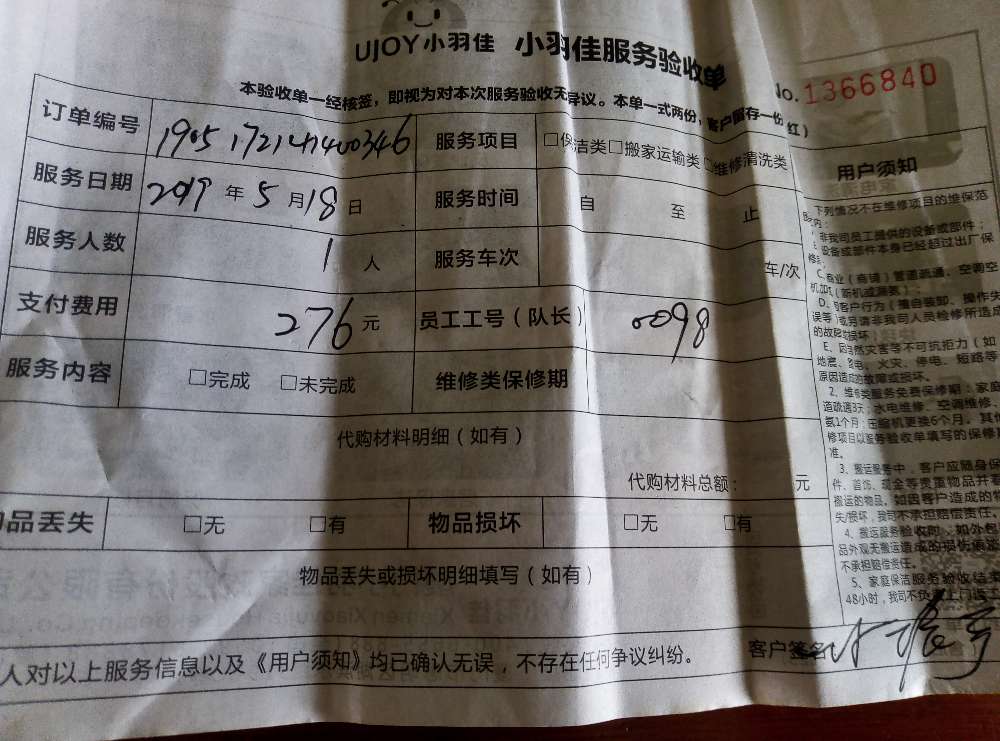 UJOY小羽佳 小羽佳服务验收单
No.1366840
本验收单一经核签，即视为对本次服务验收无异议。本单一式两份，客户留存一份（红）
订单编号 服务项目 □保洁类□搬家运输类□维修清洗类
服务日期 2019 年 5 月 18 日 服务时间 自 至 止
服务人数 1 人 服务车次 车/次
支付费用 276 元 员工工号（队长） 0098
服务内容 □完成 □未完成 维修类保修期
代购材料明细（如有）
代购材料总额： 元
品丢失 □无 □有 物品损坏 □无 □有
物品丢失或损坏明细填写（如有）
人对以上服务信息以及《用户须知》均已确认无误，不存在任何争议纠纷。 客户签名
用户须知
下列情况不在维修项目的维保范
非我司员工提供的设备或部件；
设备或部件本身已经超过出厂保
商业（商铺）管道疏通、空调空
（新机或漏氨）；
客户行为（擅自装卸、操作失
误等）或另请非我司人员检修所造成
的故障或损坏
E、因自然灾害等不可抗拒力（如
地震、雷电、火灾、停电、短路等
原因造成的故障或损坏。
2、维修类服务免费保修期：家庭
道疏通3天；水电维修、空调维修、
氨1个月；压缩机更换6个月。其
修项目以服务验收单填写的保修
准。
3、搬运服务中，客户应随身保
件、首饰、现金等贵重物品并
搬运的物品，如因客户造成的
失/损坏，我司不承担赔偿责任。
4、搬运服务验收时，如外包
品外观无搬运造成的损伤痕迹
不承担赔偿责任。
5、家庭保洁服务验收结束
48小时，我司不负责上门返工